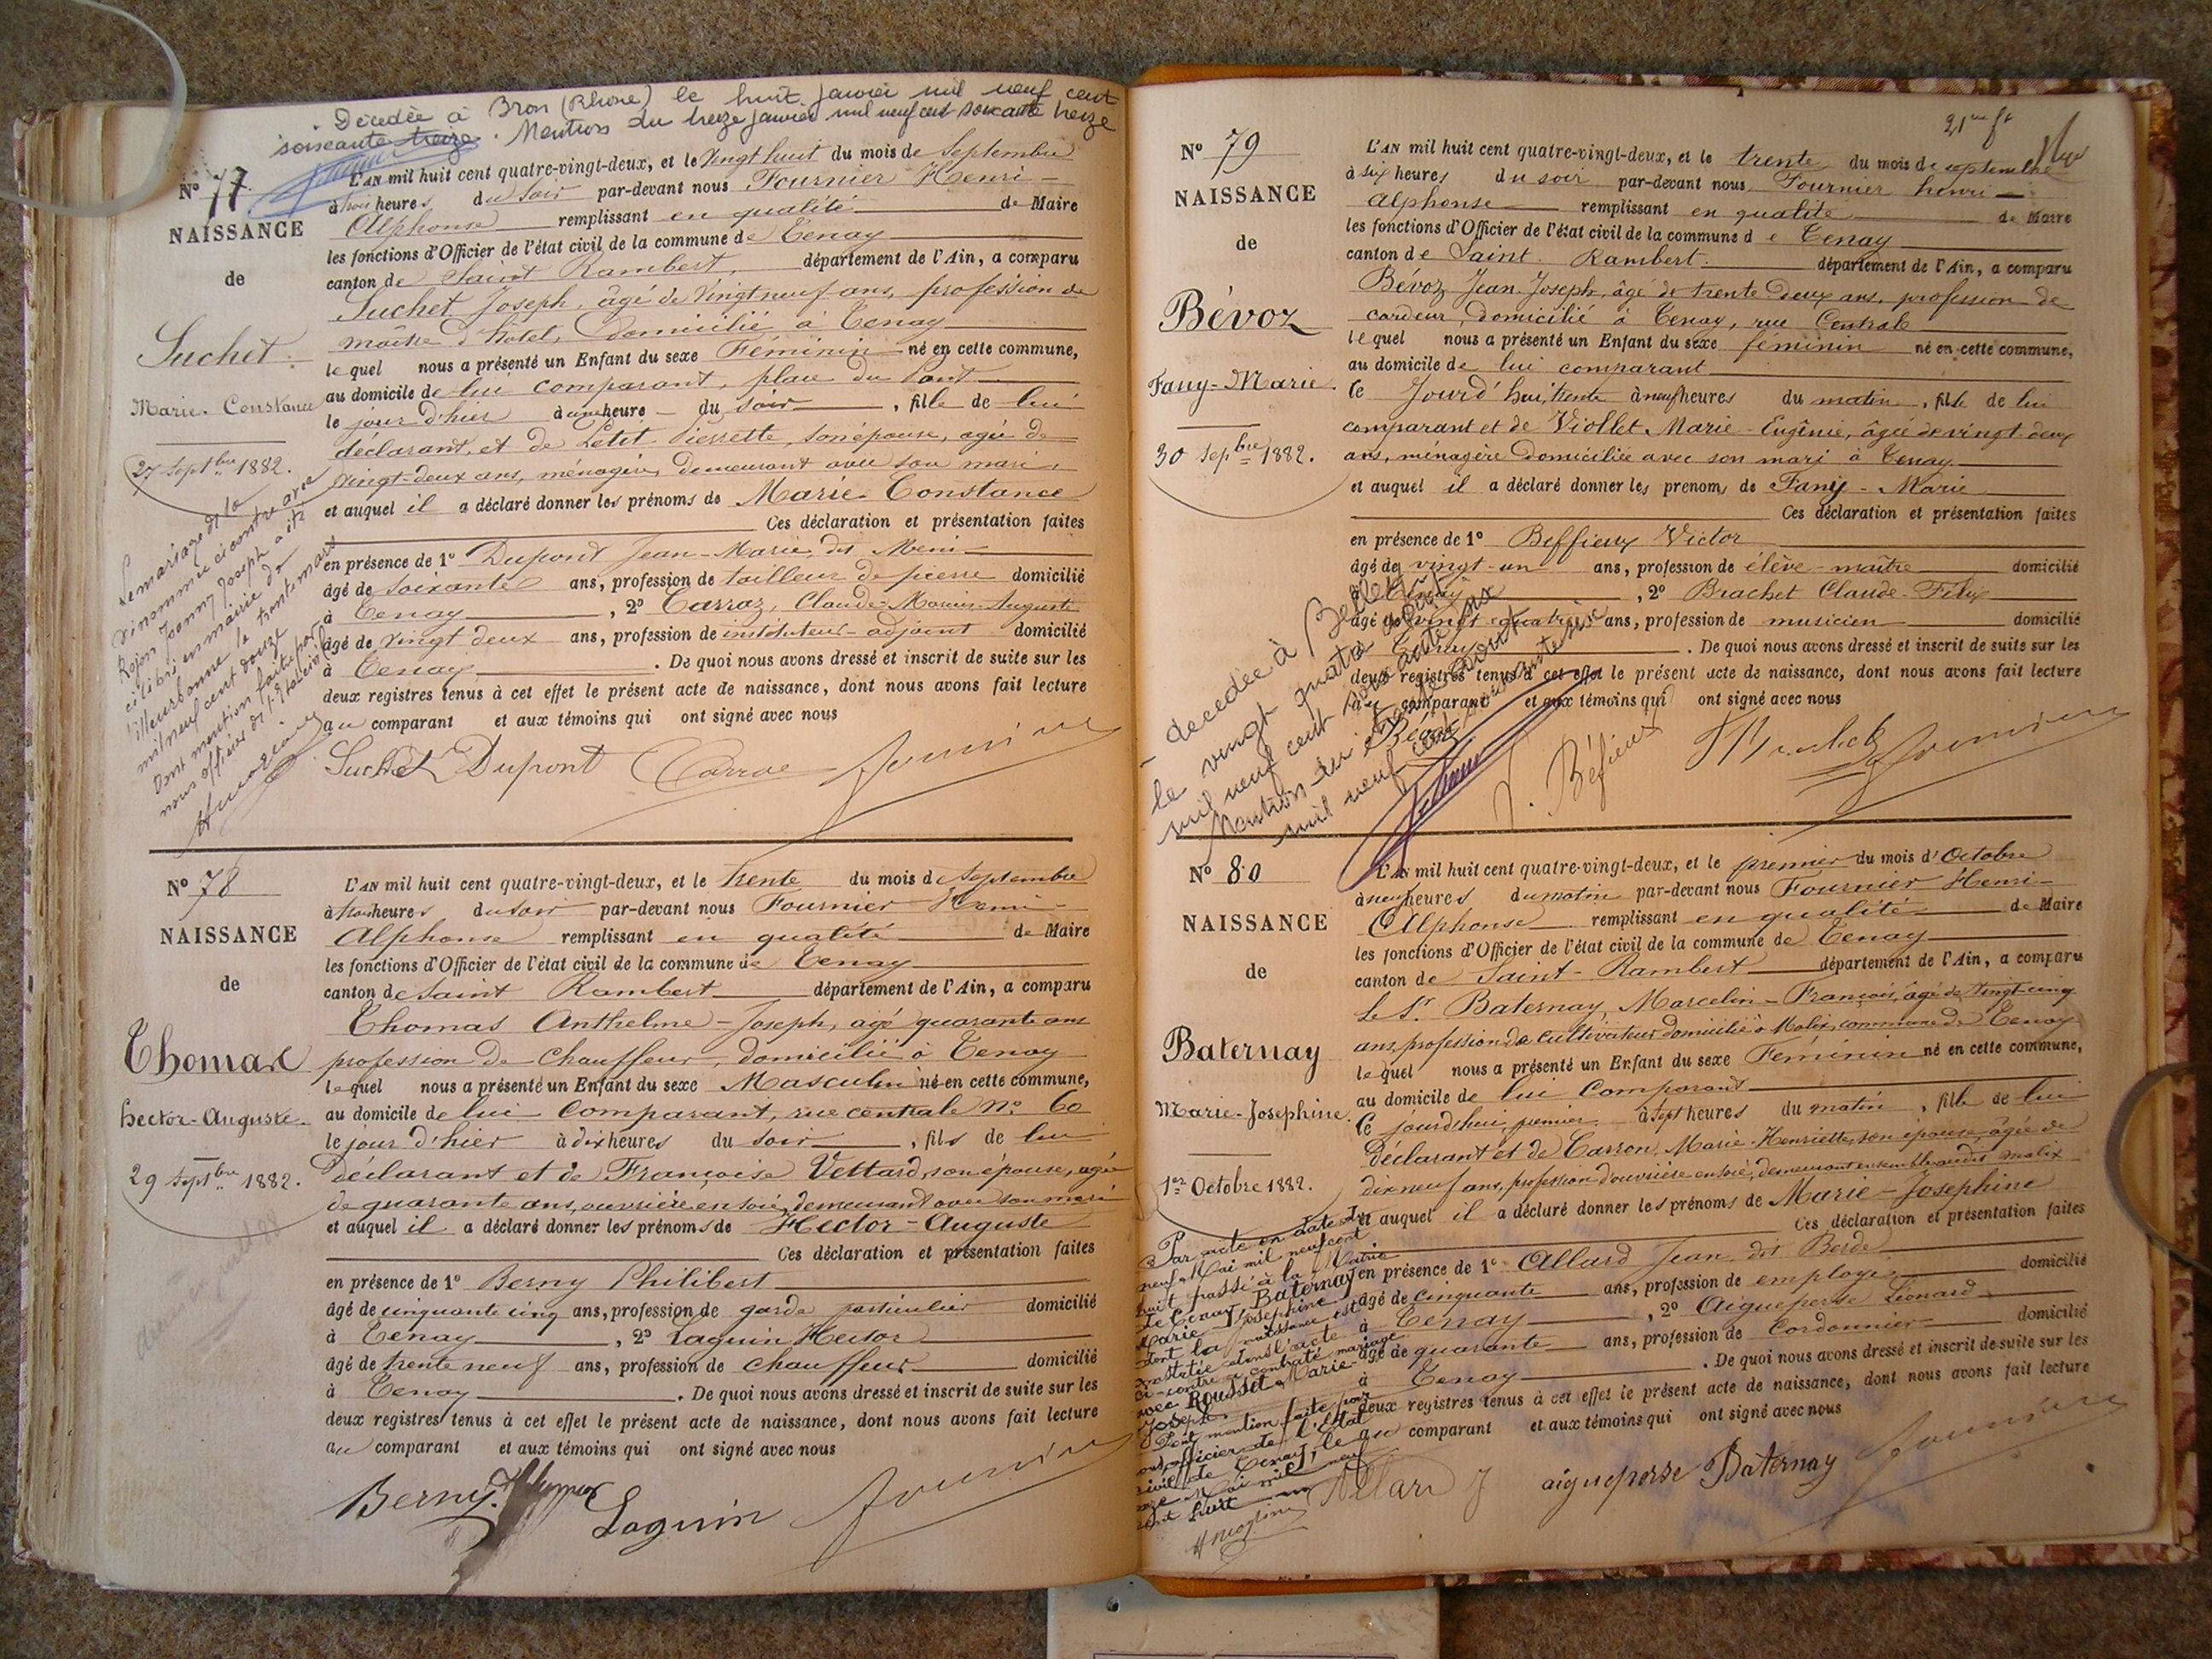 Décédée à Bron (Rhône) le huit janvier mil neuf cent
soixante treize. Mention du treize janvier mil neuf cent soixante treize
N° 77
NAISSANCE
de
Suchet
Marie-Constance
27 Septbre 1882.
Le mariage de la
susnommée ci contre avec
Joseph a été
célébré en mairie de
Villeurbanne le trente mars
mil neuf cent douze
Dont mention faite par
nous officier de l'état civil
L'AN mil huit cent quatre-vingt-deux, et le vingt huit du mois de Septembre
à trois heures du soir par-devant nous Fournier Henri-
Alphonse remplissant en qualité de Maire
les fonctions d'Officier de l'état civil de la commune de Tenay
canton de Saint Rambert, département de l'Ain, a comparu
Suchet Joseph, âgé de vingt neuf ans, profession de
maître d'hôtel, domicilié à Tenay
lequel nous a présenté un Enfant du sexe Féminin né en cette commune,
au domicile de lui comparant, place du Pont
le jour d'hier à une heure du soir, fille de lui
déclarant, et de Petit Pierrette, son épouse, agée de
vingt-deux ans, ménagère, demeurant avec son mari
et auquel il a déclaré donner les prénoms de Marie-Constance
Ces déclaration et présentation faites
en présence de 1° Dupont Jean-Marie, dit Meni
âgé de soixante ans, profession de tailleur de pierre domicilié
à Tenay, 2° Carraz, Claude-Marius-Auguste
âgé de vingt deux ans, profession de instituteur-adjoint domicilié
à Tenay. De quoi nous avons dressé et inscrit de suite sur les
deux registres tenus à cet effet le présent acte de naissance, dont nous avons fait lecture
au comparant et aux témoins qui ont signé avec nous
Suchet Dupont Carraz Fournier
N° 78
NAISSANCE
de
Thomas
hector-Auguste.
29 Septbre 1882.
L'AN mil huit cent quatre-vingt-deux, et le trente du mois de Septembre
à trois heures du soir par-devant nous Fournier Henri-
Alphonse remplissant en qualité de Maire
les fonctions d'Officier de l'état civil de la commune de Tenay
canton de Saint Rambert département de l'Ain, a comparu
Thomas Anthelme-Joseph, agé quarante ans
profession de chauffeur, domicilié à Tenay
lequel nous a présenté un Enfant du sexe Masculin né en cette commune,
au domicile de lui Comparant, rue centrale N° 60
le jour d'hier à dix heures du soir, fils de lui
déclarant et de Françoise Vettard, son épouse, agée
de quarante ans, ouvrière en soie, demeurant avec son mari
et auquel il a déclaré donner les prénoms de Hector-Auguste
Ces déclaration et présentation faites
en présence de 1° Berny Philibert
âgé de cinquante cinq ans, profession de garde particulier domicilié
à Tenay, 2° Laguin Hector
âgé de trente neuf ans, profession de chauffeur domicilié
à Tenay. De quoi nous avons dressé et inscrit de suite sur les
deux registres tenus à cet effet le présent acte de naissance, dont nous avons fait lecture
au comparant et aux témoins qui ont signé avec nous
Berny. Thomas Laguin Fournier
N° 79
NAISSANCE
de
Bévoz
Fany-Marie.
30 Sepbre 1882.
décédée à Belley
le vingt quatre
mil neuf cent soixante
Mention du
mil neuf cent soixante
L'AN mil huit cent quatre-vingt-deux, et le trente du mois de septembre
à six heures du soir par-devant nous Fournier henri-
Alphonse remplissant en qualité de Maire
les fonctions d'Officier de l'état civil de la commune de Tenay
canton de Saint Rambert département de l'Ain, a comparu
Bévoz Jean-Joseph, âgé de trente deux ans, profession de
cardeur, domicilié à Tenay, rue Centrale
lequel nous a présenté un Enfant du sexe féminin né en cette commune,
au domicile de lui comparant
le Jourd'hui, trente à neuf heures du matin, fille de lui
comparant et de Viollet Marie-Eugénie, âgée de vingt-deux
ans, ménagère domiciliée avec son mari à Tenay
et auquel il a déclaré donner les prénoms de Fany-Marie
Ces déclaration et présentation faites
en présence de 1° Beffieux Victor
âgé de vingt-un ans, profession de élève-maître domicilié
à Tenay, 2° Brachet Claude-Félix
âgé de vingt-quatre ans, profession de musicien domicilié
à Tenay. De quoi nous avons dressé et inscrit de suite sur les
deux registres tenus à cet effet le présent acte de naissance, dont nous avons fait lecture
au comparant et aux témoins qui ont signé avec nous
Bévoz V. Béfieux Brachet Fournier
N° 80
NAISSANCE
de
Baternay
Marie-Josephine.
1er Octobre 1882.
Par acte en date du
neuf Mai mil neuf cent
huit passé à la Mairie
de Tenay, Baternay
Marie Josephine
dont la naissance est
constatée dans l'acte
ci-contre a contracté mariage
avec Rousset Marie-
Joseph.
Dont mention faite par
nous, officier de l'Etat
civil de Tenay, le
onze Mai mil neuf
cent huit
L'AN mil huit cent quatre-vingt-deux, et le premier du mois d'Octobre
à neuf heures du matin par-devant nous Fournier Henri-
Alphonse remplissant en qualité de Maire
les fonctions d'Officier de l'état civil de la commune de Tenay
canton de Saint-Rambert département de l'Ain, a comparu
Le Sr Baternay, Marcelin-François, âgé de vingt-cinq
ans, profession de cultivateur domicilié à Malix, commune de Tenay
lequel nous a présenté un Enfant du sexe Féminin né en cette commune,
au domicile de lui Comparant
le jourdhui, premier à sept heures du matin, fille de lui
Déclarant et de Carron, Marie-Henriette, son épouse, âgée de
dix neuf ans, profession d'ouvrière en soie, demeurant ensemble audit Malix
et auquel il a déclaré donner les prénoms de Marie-Josephine
Ces déclaration et présentation faites
en présence de 1° Allard Jean dit Berde
âgé de cinquante ans, profession de employé domicilié
à Tenay, 2° Aigueperse Léonard
âgé de quarante ans, profession de cordonnier domicilié
à Tenay. De quoi nous avons dressé et inscrit de suite sur les
deux registres tenus à cet effet le présent acte de naissance, dont nous avons fait lecture
au comparant et aux témoins qui ont signé avec nous
Allard J aigueperse Baternay Fournier